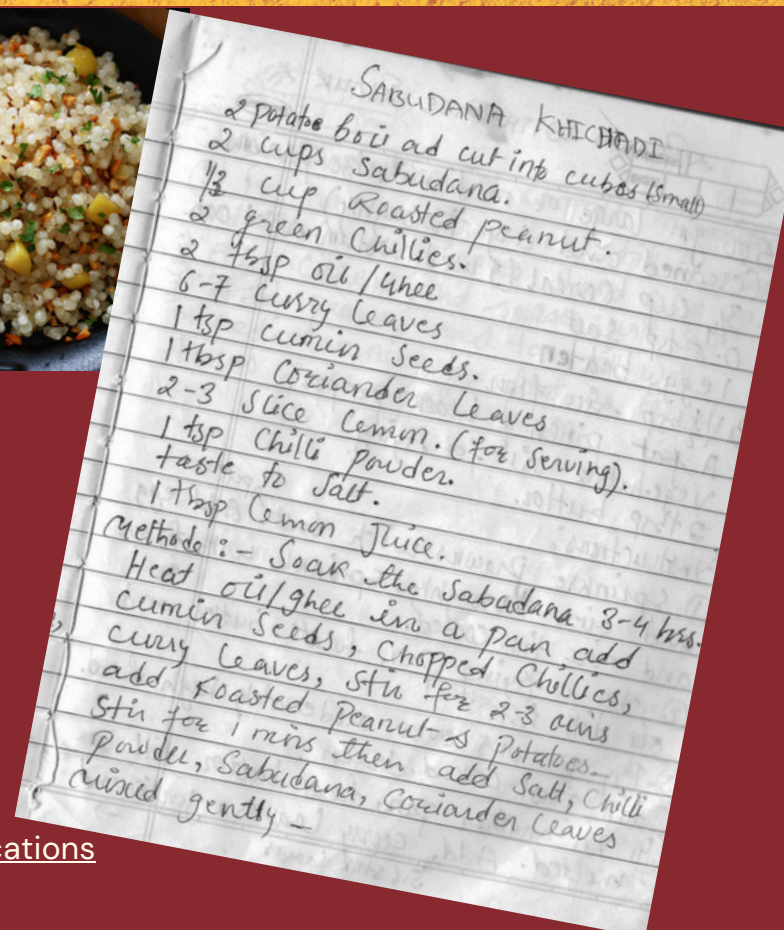 SABUDANA KHICHADI
2 potatoe boil ad cut into cubes (small)
2 cups Sabudana.
1/2 cup Roasted peanut.
2 green Chillies.
2 tbsp oil / Ghee
6-7 curry leaves
1 tsp cumin seeds.
1 tbsp Coriander Leaves
2-3 slice Lemon. (for Serving).
1 tsp Chilli Powder.
taste to Salt.
1 tbsp Lemon Juice.
Methode :- Soak the Sabudana 3-4 hrs.
Heat oil/ghee in a pan add
Cumin Seeds, Chopped Chillies,
curry leaves, stir for 2-3 mins
add Roasted Peanut & Potatoes
Stir for 1 mins then add Salt, Chilli
Powder, Sabudana, Coriander Leaves
mixed gently –
cations